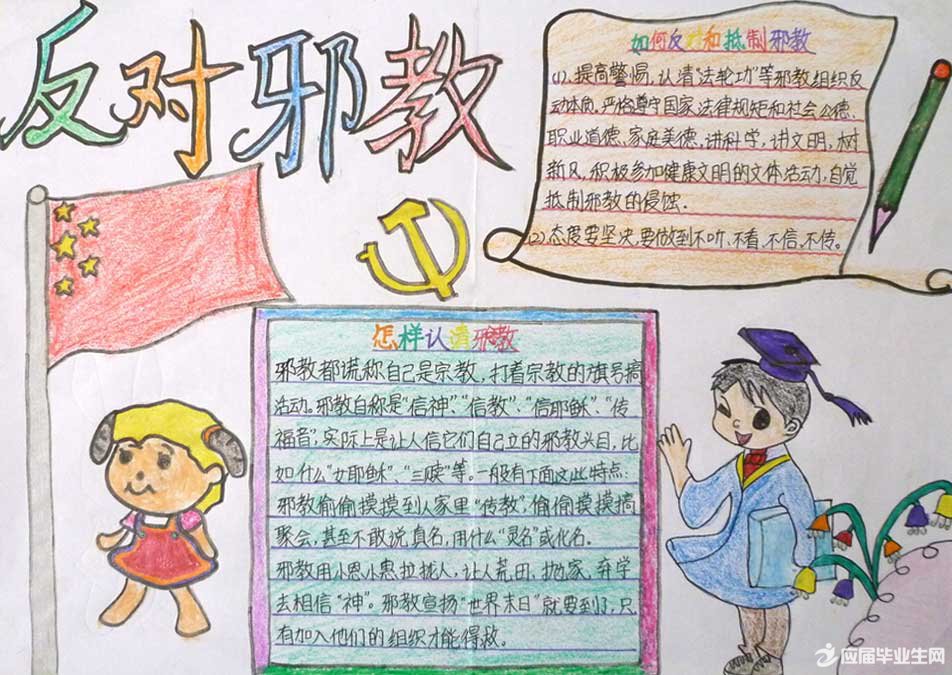 反对邪教
如何反对和抵制邪教
(1)、提高警惕,认清“法轮功”等邪教组织反
动本质,严格遵守国家法律规矩和社会公德、
职业道德、家庭美德,讲科学,讲文明,树
新风,积极参加健康文明的文体活动,自觉
抵制邪教的侵蚀.
(2)、态度要坚决,要做到不听、不看、不信、不传。
怎样认清邪教
邪教都谎称自己是宗教,打着宗教的旗号搞
活动。邪教自称是“信神”、“信教”、“信耶稣”、“传
福音”,实际上是让人信它们自己立的邪教头目,比
如什么“女耶稣”、“三赎”等。一般有下面这些特点:
邪教偷偷摸摸到人家里“传教”,偷偷摸摸搞
聚会,甚至不敢说真名,用什么“灵名”或化名.
邪教用小恩小惠拉拢人,让人荒田、抛家、弃学
去相信“神”。邪教宣扬“世界末日”就要到了,只
有加入他们的组织才能得救。
应届毕业生网